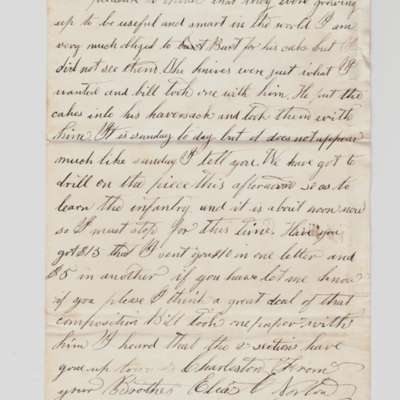 pleasure to think that they even growing
up to be useful and smart in the world I am
very much obliged to Bart for his cake but I
did not see them. The knives even just what I
wanted and bill took one with him. He put the
cakes into his haversack and took them with
him. It is sunday to day but it does not appear
much like sunday I tell you. We have got to
drill on the piece this afternoon so as to
learn the infantry and it is about noon now
so I must stop for this time. Have you
got $15 that I sent you $10 in one letter and
$5 in another if you have let me know
if you please I think a great deal of that
composition Bill took one paper with
him I heard that the 2 sections have
gone up towards Charleston From
your Brother C Norton